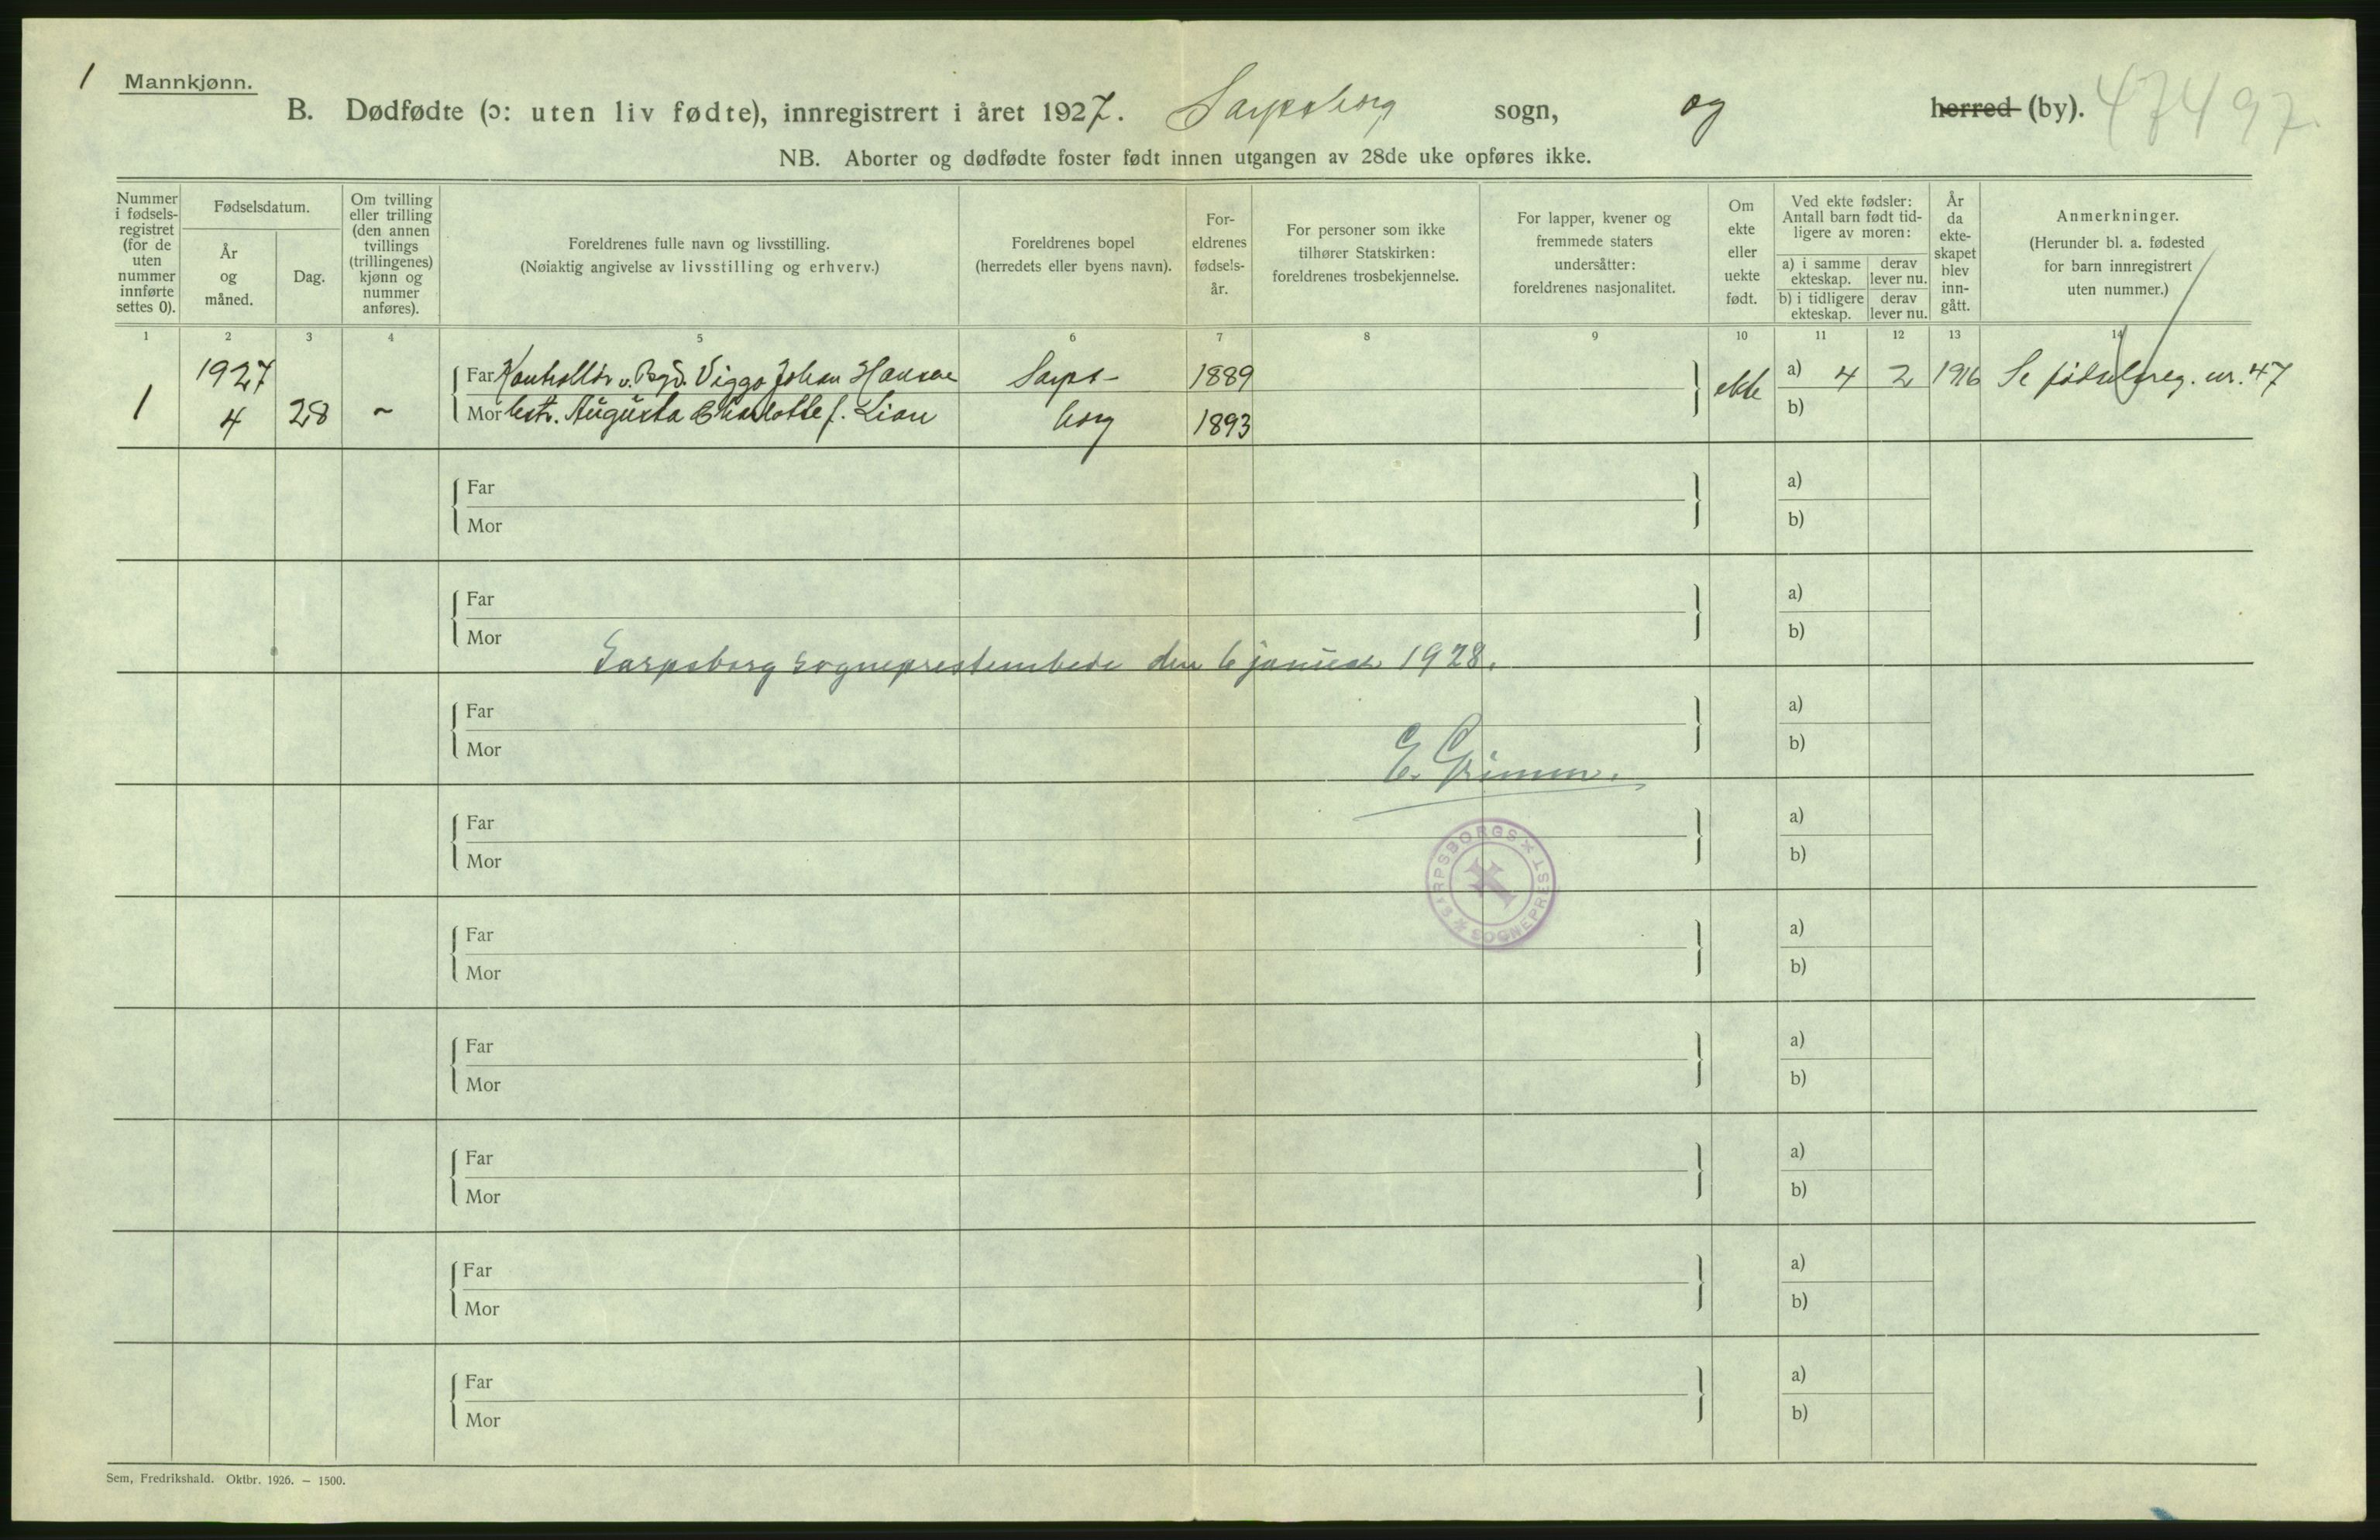 1 Mannkjønn.
B. Dødfødte (ɔ: uten liv fødte), innregistrert i året 1927. Sarpsborg sogn, og herred (by). 47497.
NB. Aborter og dødfødte foster født innen utgangen av 28de uke opføres ikke.
Nummer i fødsels-
registret
(for de
uten
nummer
innførte
settes 0).
Fødselsdatum.
År
og
måned.
Dag.
Om tvilling
eller trilling
(den annen
tvillings
(trillingenes)
kjønn og
nummer
anføres).
Foreldrenes fulle navn og livsstilling.
(Nøiaktig angivelse av livsstilling og erhverv.)
Foreldrenes bopel
(herredets eller byens navn).
For-
eldrenes
fødsels-
år.
For personer som ikke
tilhører Statskirken:
foreldrenes trosbekjennelse.
For lapper, kvener og
fremmede staters
undersåtter:
foreldrenes nasjonalitet.
Om
ekte
eller
uekte
født.
Ved ekte fødsler:
Antall barn født tid-
ligere av moren:
a) i samme
ekteskap.
derav
lever nu.
b) i tidligere
ekteskap.
derav
lever nu.
År
da
ekte-
skapet
blev
inn-
gått.
Anmerkninger.
(Herunder bl. a. fødested
for barn innregistrert
uten nummer.)
1 2 3 4 5 6 7 8 9 10 11 12 13 14
1927 Far Kontrollør v. Viggo Johan Hansen Sarps- 1889 ekte a) 4 2 1916 Se fødselsreg. nr. 47
1 4 28 ~ Mor hustr. Augusta Charlotte f. Lian borg 1893 b)
Far a)
Mor b)
Far a)
Mor b)
Sarpsborg sogneprestembede den 6 januar 1928.
Far a)
Mor b)
E. Grimm.
Far a)
Mor b)
SARPSBORGS SOGNEPREST
Far a)
Mor b)
Far a)
Mor b)
Far a)
Mor b)
Far a)
Mor b)
Far a)
Mor b)
Sem, Fredrikshald. Oktbr. 1926. – 1500.